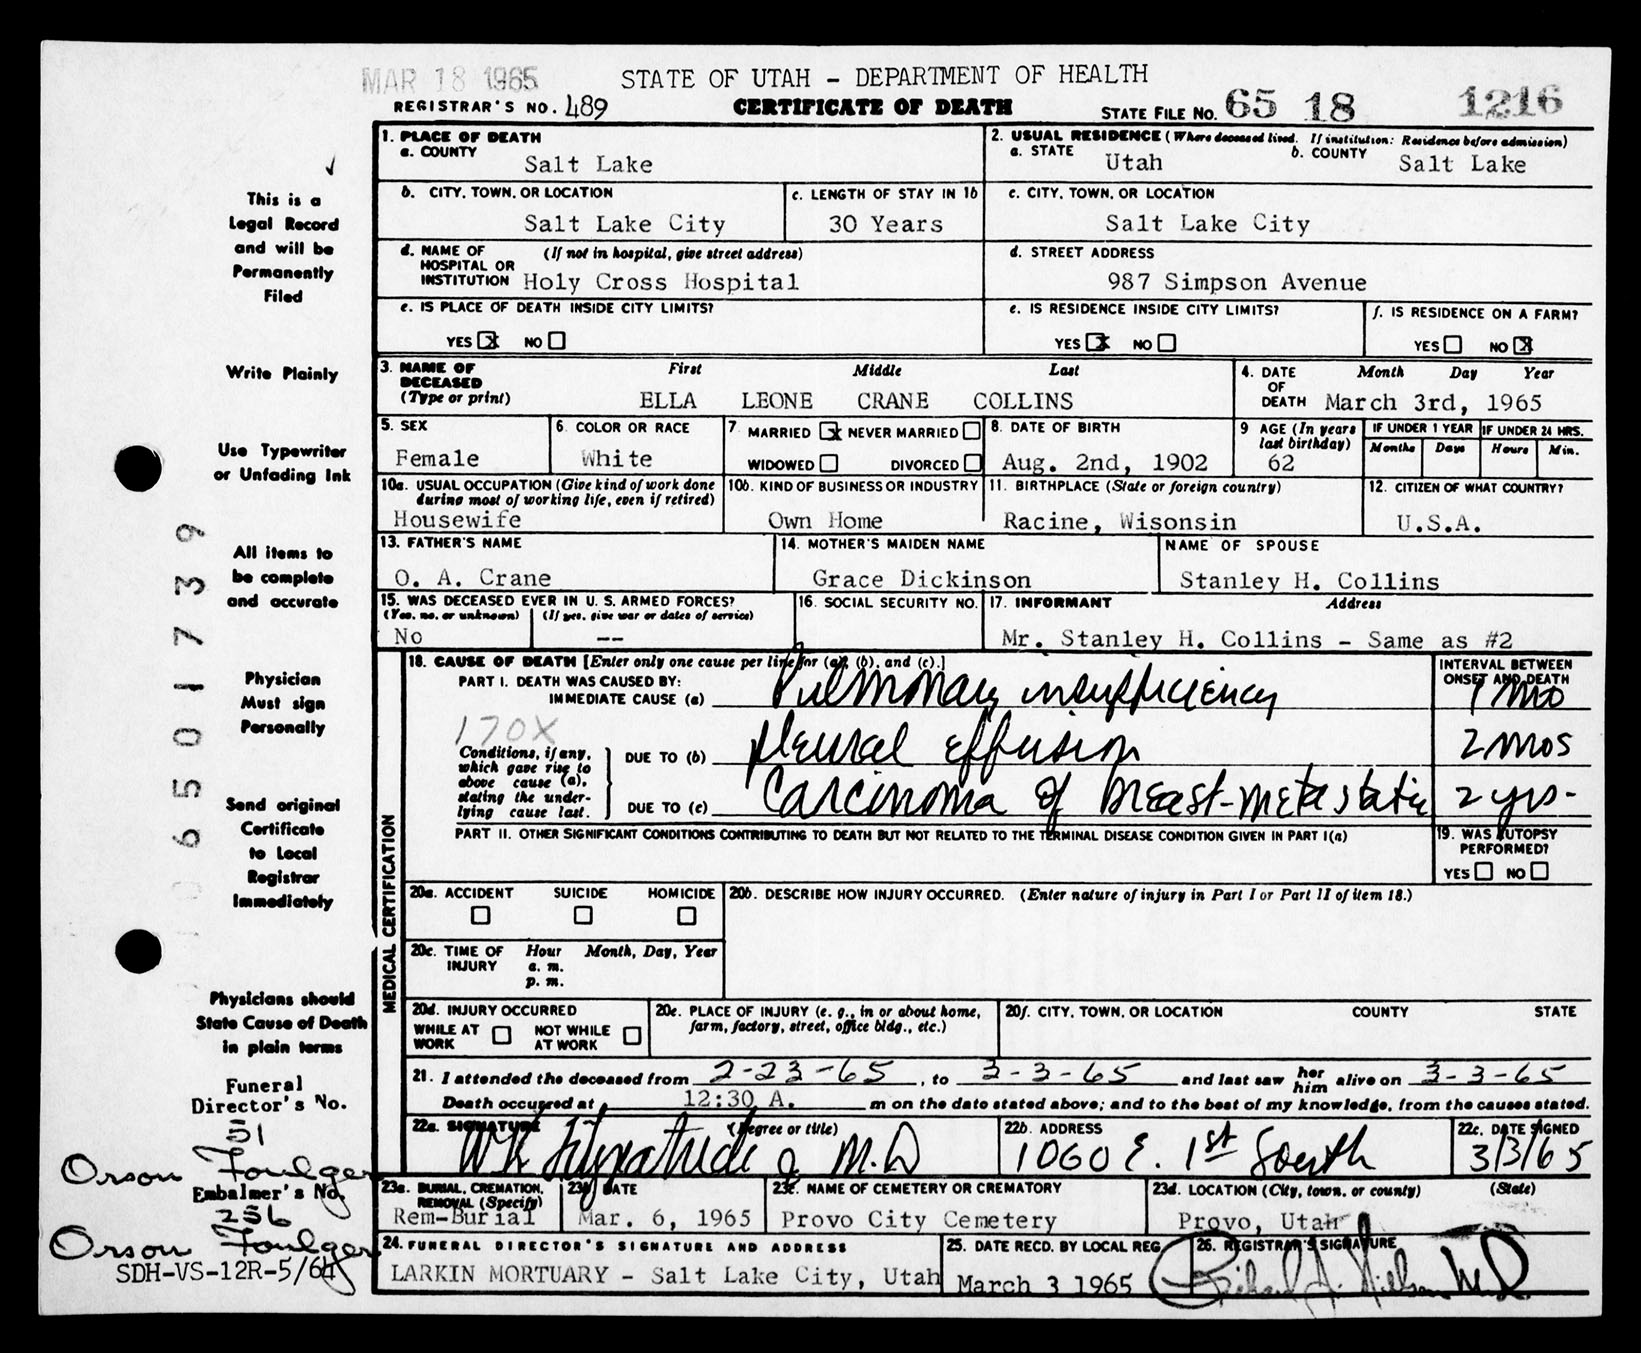 MAR 18 1965
STATE OF UTAH - DEPARTMENT OF HEALTH
REGISTRAR'S NO. 489
CERTIFICATE OF DEATH
STATE FILE NO. 65 18 1216
This is a
Legal Record
and will be
Permanently
Filed
Write Plainly
Use Typewriter
or Unfading Ink
All items to
be complete
and accurate
Physician
Must sign
Personally
Send original
Certificate
to Local
Registrar
Immediately
Physicians should
State Cause of Death
in plain terms
Funeral
Director's No.
51
Orson Foulger
Embalmer's No.
256
Orson Foulger
SDH-VS-12R-5/64
6501739
1. PLACE OF DEATH
a. COUNTY
Salt Lake
2. USUAL RESIDENCE (Where deceased lived. If institution: Residence before admission)
a. STATE Utah b. COUNTY Salt Lake
b. CITY, TOWN, OR LOCATION
Salt Lake City
c. LENGTH OF STAY IN 1b
30 Years
c. CITY, TOWN, OR LOCATION
Salt Lake City
d. NAME OF (If not in hospital, give street address)
HOSPITAL OR
INSTITUTION Holy Cross Hospital
d. STREET ADDRESS
987 Simpson Avenue
e. IS PLACE OF DEATH INSIDE CITY LIMITS?
YES X NO
e. IS RESIDENCE INSIDE CITY LIMITS?
YES X NO
f. IS RESIDENCE ON A FARM?
YES NO X
3. NAME OF First Middle Last
DECEASED
(Type or print) ELLA LEONE CRANE COLLINS
4. DATE Month Day Year
OF
DEATH March 3rd, 1965
5. SEX
Female
6. COLOR OR RACE
White
7. MARRIED X NEVER MARRIED
WIDOWED DIVORCED
8. DATE OF BIRTH
Aug. 2nd, 1902
9 AGE (In years
last birthday)
62
IF UNDER 1 YEAR
Months Days
IF UNDER 24 HRS.
Hours Min.
10a. USUAL OCCUPATION (Give kind of work done
during most of working life, even if retired)
Housewife
10b. KIND OF BUSINESS OR INDUSTRY
Own Home
11. BIRTHPLACE (State or foreign country)
Racine, Wisonsin
12. CITIZEN OF WHAT COUNTRY?
U.S.A.
13. FATHER'S NAME
O. A. Crane
14. MOTHER'S MAIDEN NAME
Grace Dickinson
NAME OF SPOUSE
Stanley H. Collins
15. WAS DECEASED EVER IN U. S. ARMED FORCES?
(Yes, no, or unknown) (If yes, give war or dates of service)
No --
16. SOCIAL SECURITY NO.
17. INFORMANT Address
Mr. Stanley H. Collins - Same as #2
MEDICAL CERTIFICATION
18. CAUSE OF DEATH [Enter only one cause per line for (a), (b), and (c).]
INTERVAL BETWEEN
ONSET AND DEATH
PART I. DEATH WAS CAUSED BY:
IMMEDIATE CAUSE (a) Pulmonary insufficiency 1 mo
170X
Conditions, if any,
which gave rise to
above cause (a),
stating the under-
lying cause last.
DUE TO (b) pleural effusion 2 mos
DUE TO (c) Carcinoma of breast-metastatic 2 yrs-
PART II. OTHER SIGNIFICANT CONDITIONS CONTRIBUTING TO DEATH BUT NOT RELATED TO THE TERMINAL DISEASE CONDITION GIVEN IN PART I(a)
19. WAS AUTOPSY
PERFORMED?
YES NO
20a. ACCIDENT SUICIDE HOMICIDE
20b. DESCRIBE HOW INJURY OCCURRED. (Enter nature of injury in Part I or Part II of item 18.)
20c. TIME OF Hour Month, Day, Year
INJURY a. m.
p. m.
20d. INJURY OCCURRED
WHILE AT WORK NOT WHILE AT WORK
20e. PLACE OF INJURY (e. g., in or about home,
farm, factory, street, office bldg., etc.)
20f. CITY, TOWN, OR LOCATION COUNTY STATE
21. I attended the deceased from 2-23-65, to 3-3-65 and last saw her him alive on 3-3-65
Death occurred at 12:30 A. m on the date stated above; and to the best of my knowledge, from the causes stated.
22a. SIGNATURE (Degree or title)
WK Fitzpatrick M.D
22b. ADDRESS
1060 E. 1st South
22c. DATE SIGNED
3/3/65
23a. BURIAL, CREMATION,
REMOVAL (Specify)
Rem-Burial
23b. DATE
Mar. 6, 1965
23c. NAME OF CEMETERY OR CREMATORY
Provo City Cemetery
23d. LOCATION (City, town, or county) (State)
Provo, Utah
24. FUNERAL DIRECTOR'S SIGNATURE AND ADDRESS
LARKIN MORTUARY - Salt Lake City, Utah
25. DATE RECD. BY LOCAL REG.
March 3 1965
26. REGISTRAR'S SIGNATURE